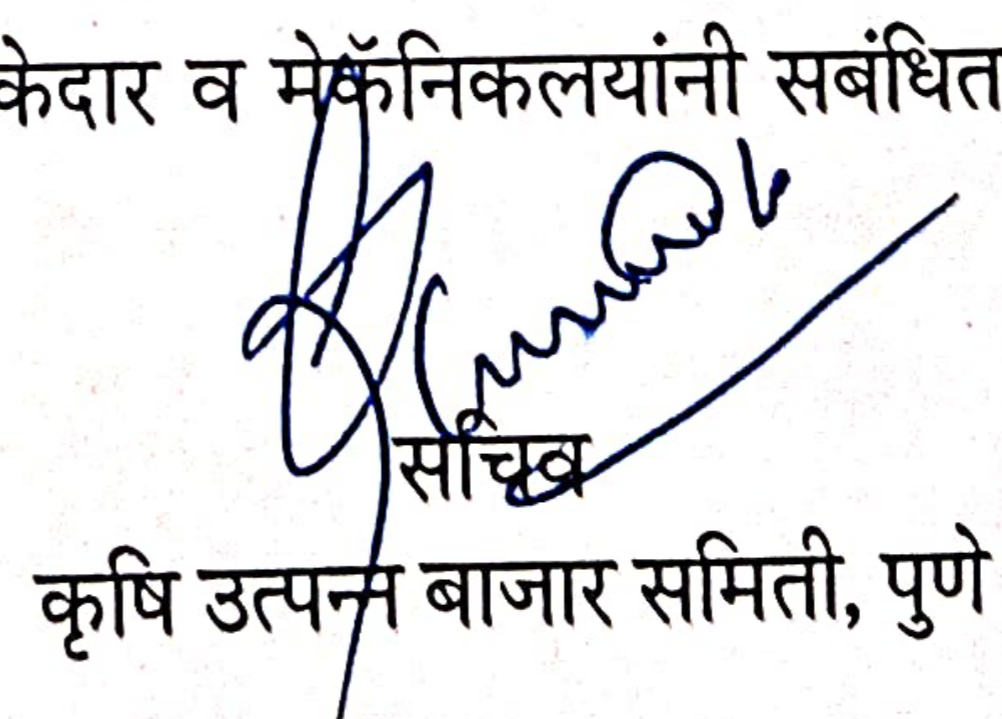 केदार व मेकॅनिकलयांनी सबंधित
सचिव
कृषि उत्पन्न बाजार समिती, पुणे